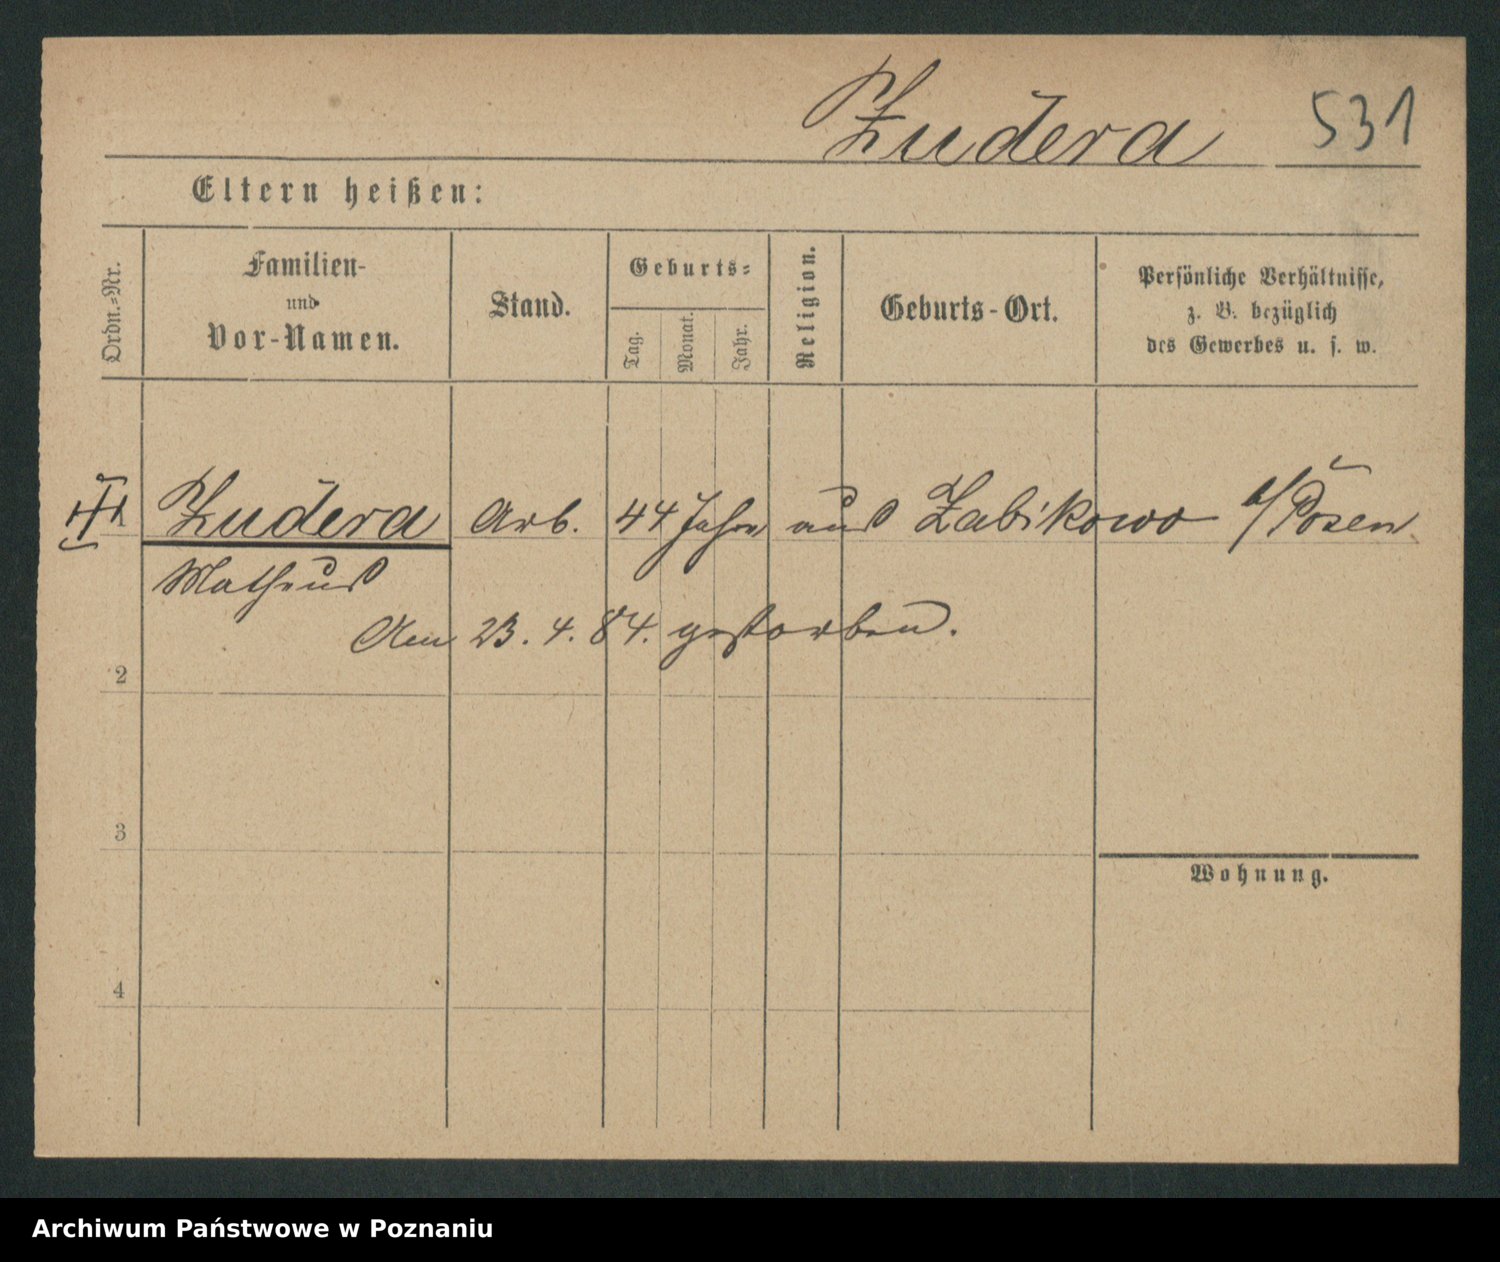 Zudera 531
Eltern heißen:
Ordn.=Nr.
Familien-
und
Vor-Namen.
Stand.
Geburts=
Tag.
Monat.
Jahr.
Religion.
Geburts-Ort.
Persönliche Verhältnisse,
z. B. bezüglich
des Gewerbes u. s. w.
Zudera Arb. 44 Jahre aus Zabikowo b/Posen
Matheus
Am 23. 4. 84. gestorben.
2
3
Wohnung.
4
Archiwum Państwowe w Poznaniu